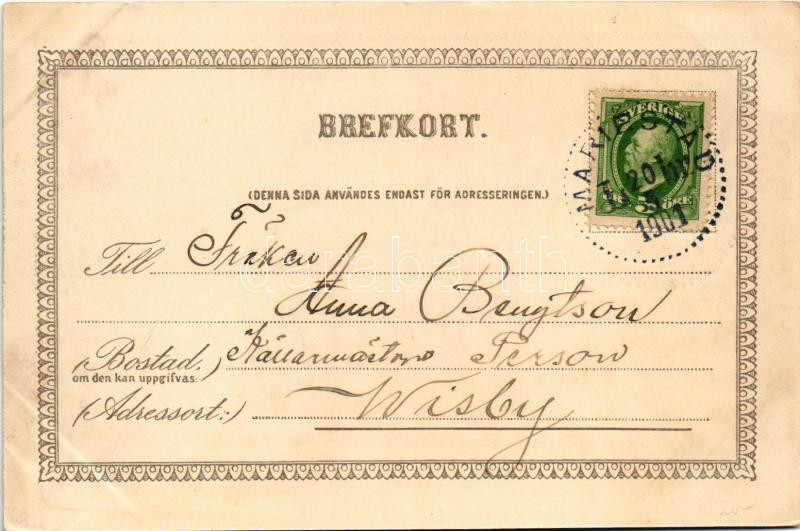 BREFKORT.
SVERIGE
5 ÖRE
MARIESTAD
20 1
1901
(DENNA SIDA ANVÄNDES ENDAST FÖR ADRESSERINGEN.)
Till Fröken
Anna Bengtson
(Bostad,) Källarmästare Person
om den kan uppgifvas:
(Adressort:) Wisby
darabanth